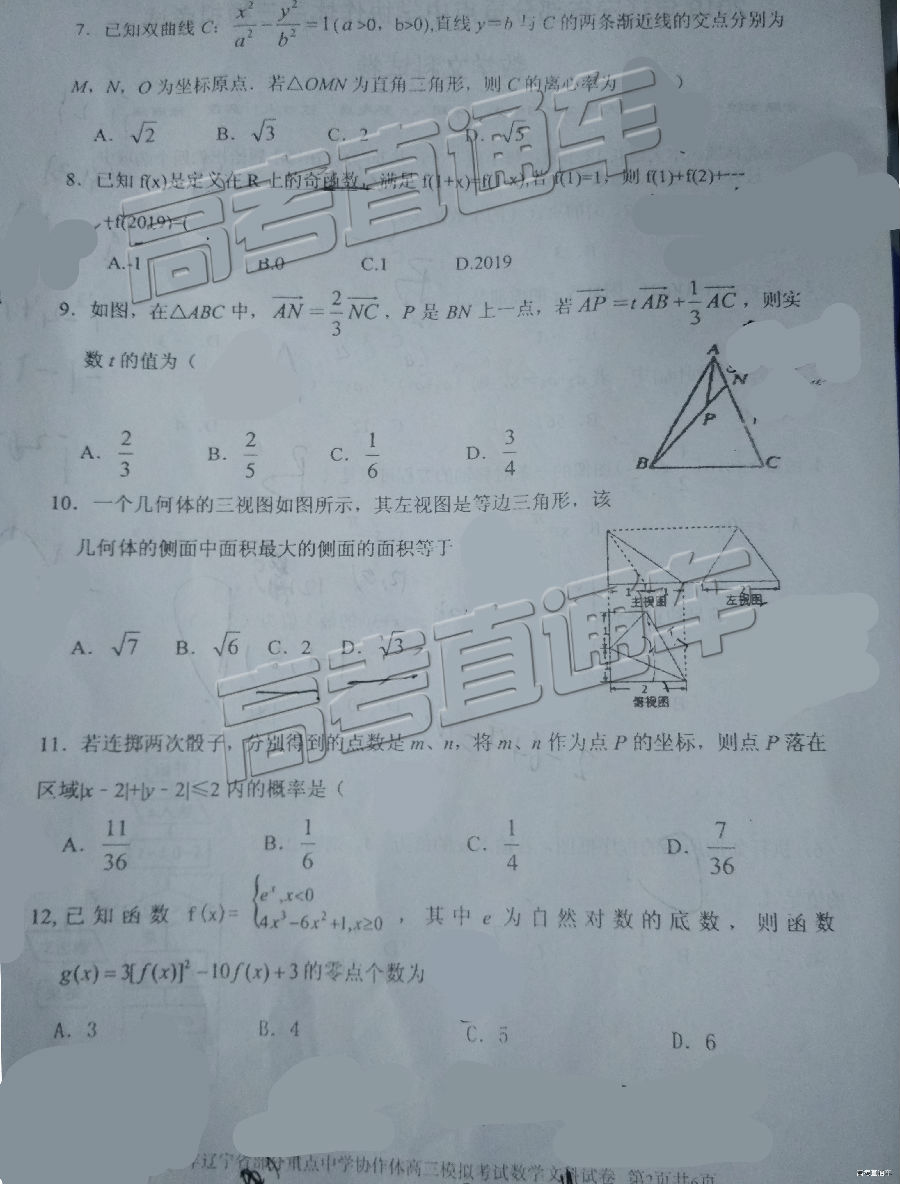 7. 已知双曲线 C: x²/a² - y²/b² =1(a>0, b>0),直线 y=b 与 C 的两条渐近线的交点分别为
M, N, O 为坐标原点. 若△OMN 为直角三角形, 则 C 的离心率为 )
A. √2 B. √3 C. 2 D. √5
8. 已知 f(x)是定义在 R 上的奇函数, 满足 f(1+x)=f(1-x),若 f(1)=1, 则 f(1)+f(2)+···
+f(2019)=(
A.-1 B.0 C.1 D.2019
9. 如图, 在△ABC 中, AN = 2/3 NC, P 是 BN 上一点, 若 AP = t AB + 1/3 AC, 则实
数 t 的值为 (
A. 2/3 B. 2/5 C. 1/6 D. 3/4
A
N
P
B C
10. 一个几何体的三视图如图所示, 其左视图是等边三角形, 该
几何体的侧面中面积最大的侧面的面积等于
A. √7 B. √6 C. 2 D. √3
1
主视图
2
左视图
2
俯视图
11. 若连掷两次骰子, 分别得到的点数是 m、n, 将 m、n 作为点 P 的坐标, 则点 P 落在
区域|x﹣2|+|y﹣2|≤2 内的概率是 (
A. 11/36 B. 1/6 C. 1/4 D. 7/36
12, 已知函数 f(x)= {e^x ,x<0 4x³-6x²+1,x≥0 , 其中 e 为自然对数的底数, 则函数
g(x)=3[f(x)]²-10f(x)+3 的零点个数为
A. 3 B. 4 C. 5 D. 6
辽宁省部分重点中学协作体高三模拟考试数学文科试卷 第2页共6页
高考直通车
高考直通车